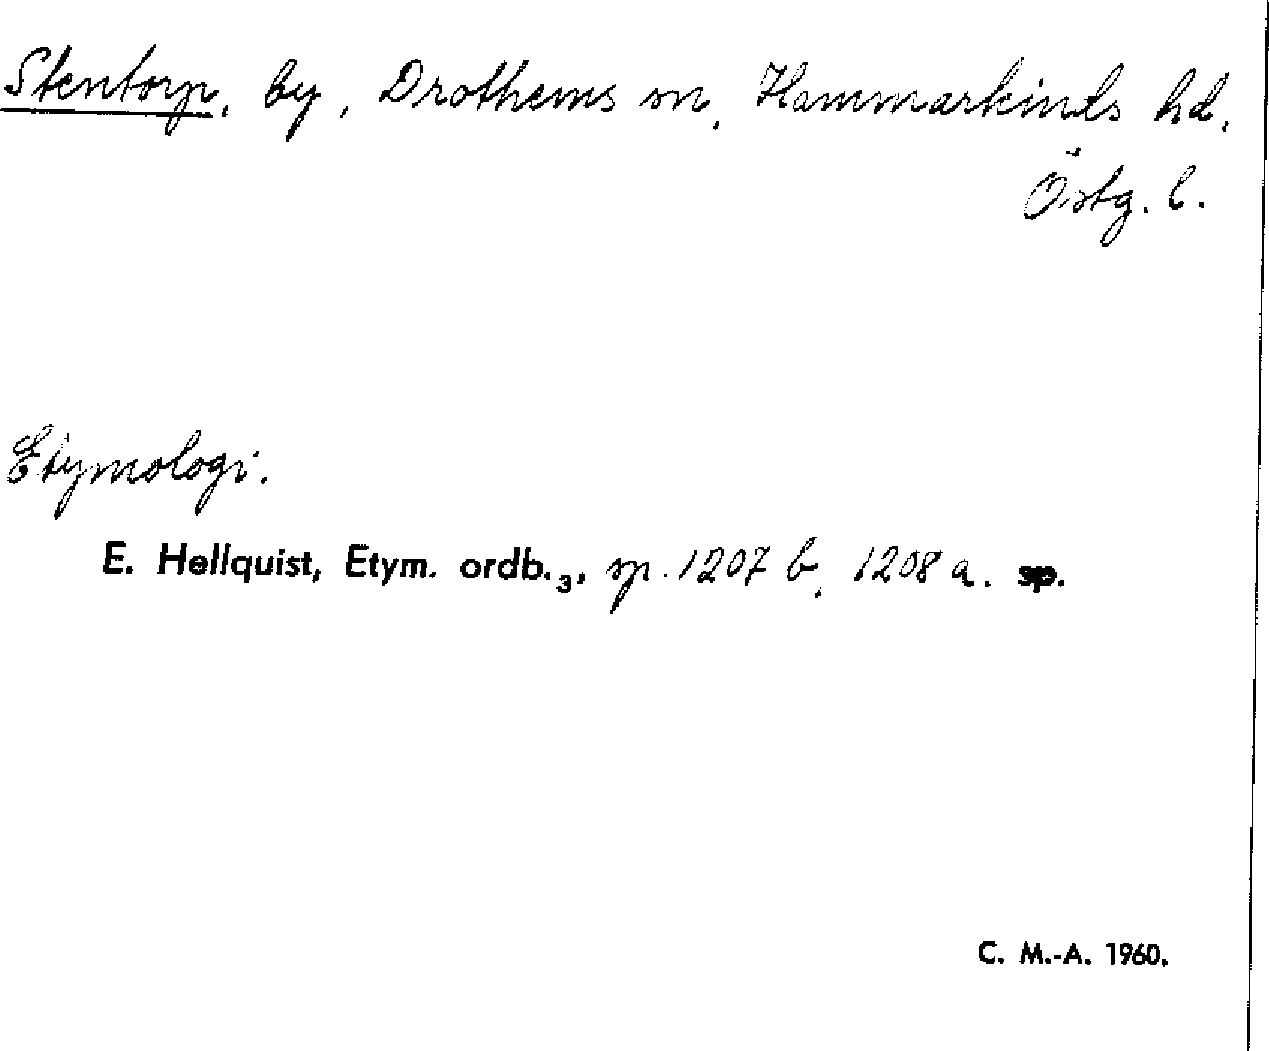 Stentorp, by, Drothems sn, Hammarkinds hd,
Östg. l.
Etymologi.
E. Hellquist, Etym. ordb.₃, sp. 1207 b, 1208 a. sp.
C. M.-A. 1960.